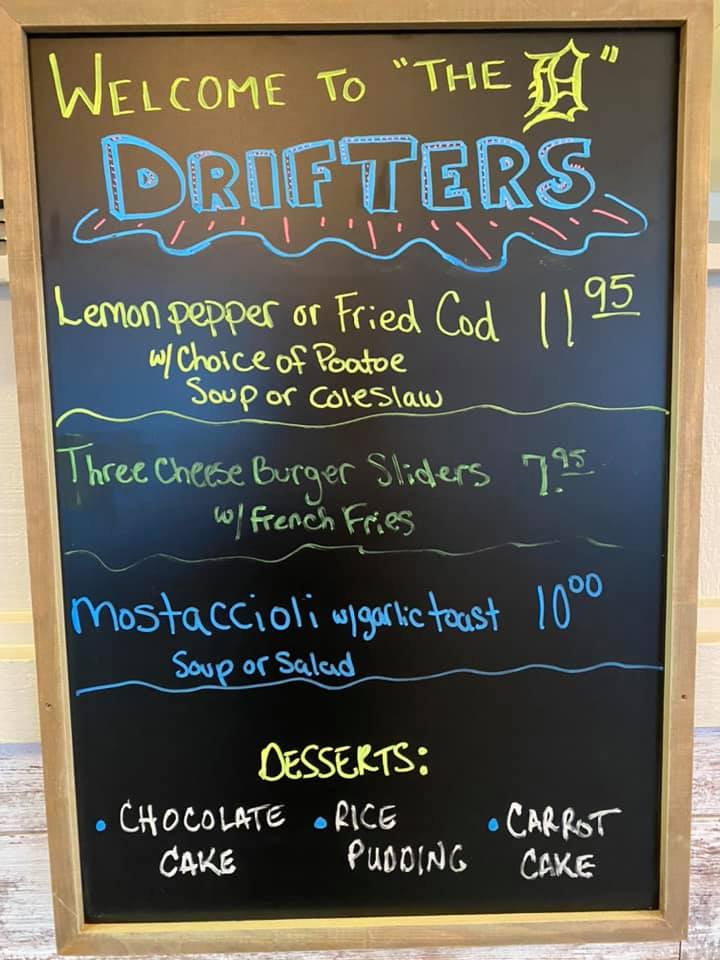 WELCOME TO "THE D"
DRIFTERS
Lemon pepper or Fried Cod 11 95
w/ Choice of Poatoe
Soup or coleslaw
Three Cheese Burger Sliders 7.95
w/ French Fries
Mostaccioli w/garlic toast 10 00
Soup or Salad
DESSERTS:
• CHOCOLATE CAKE
• RICE PUDDING
• CARROT CAKE